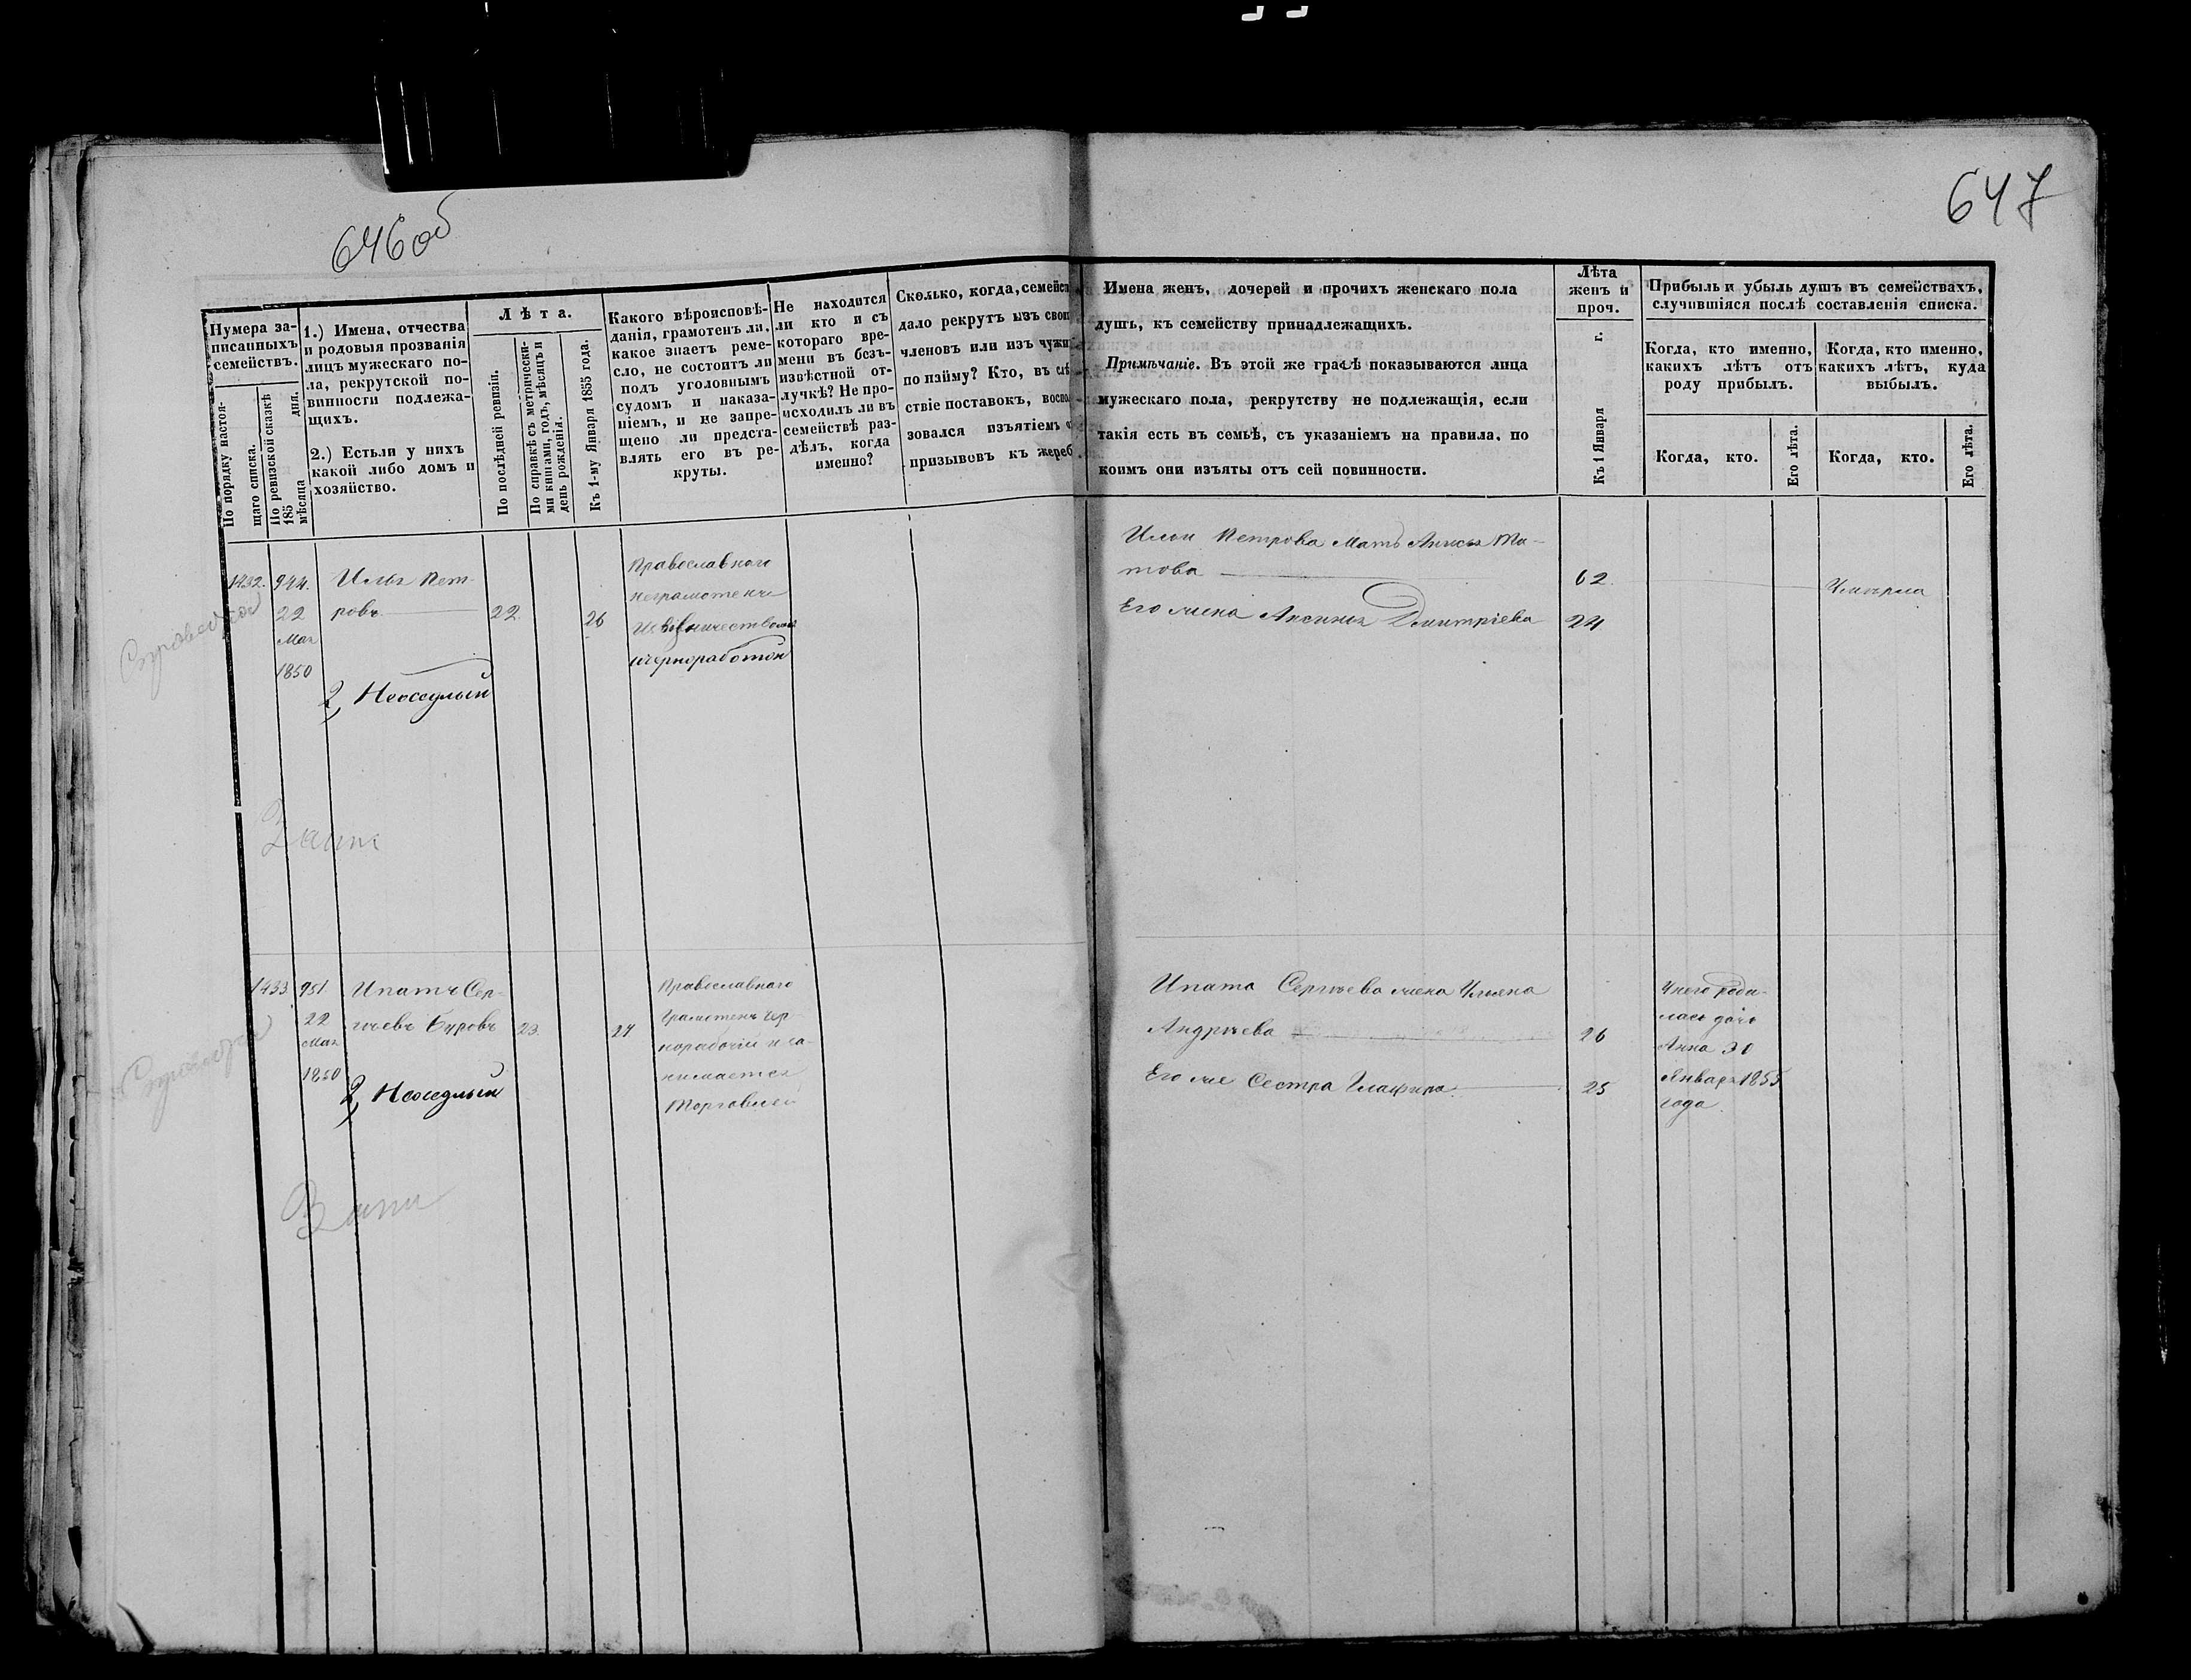 646об
647
Нумера за-
писанныхъ
семействъ.
По порядку настоя-
щаго списка.
По ревизской сказкѣ
185 дня.
мѣсяца
1.) Имена, отчества
и родовыя прозванія
лицъ мужескаго по-
ла, рекрутской по-
винности подлежа-
щихъ.
2.) Естьли у нихъ
какой либо домъ и
хозяйство.
Лѣта.
По послѣдней ревизіи.
По справкѣ съ метрически-
ми книгами, годъ, мѣсяцъ и
день рожденія.
Къ 1-му Января 1855 года.
Какого вѣроисповѣ-
данія, грамотенъ ли,
какое знаетъ реме-
сло, не состоитъ ли
подъ уголовнымъ
судомъ и наказа-
ніемъ, и не запре-
щено ли предста-
влять его въ ре-
круты.
Не находится
ли кто и съ
котораго вре-
мени въ безъ-
извѣстной от-
лучкѣ? Не про-
исходилъ ли въ
семействѣ раз-
дѣлъ, когда
именно?
Сколько, когда, семейст
дало рекрутъ изъ свои
членовъ или изъ чужи
по найму? Кто, въ слѣ
ствіе поставокъ, воспо
зовался изъятіемъ
призывовъ къ жереб
Имена женъ, дочерей и прочихъ женскаго пола
душъ, къ семейству принадлежащихъ.
Примѣчаніе. Въ этой же графѣ показываются лица
мужескаго пола, рекрутству не подлежащія, если
такія есть въ семьѣ, съ указаніемъ на правила, по
коимъ они изъяты отъ сей повинности.
Лѣта
женъ и
проч.
Къ 1 Января г.
Прибыль и убыль душъ въ семействахъ,
случившіяся послѣ составленія списка.
Когда, кто именно,
какихъ лѣтъ отъ
роду прибылъ.
Когда, кто именно,
какихъ лѣтъ, куда
выбылъ.
Когда, кто.
Его лѣта.
Когда, кто.
Его лѣта.
1432. 944. Илья Пет-
22 ровъ 22. 26
Мая
1850
2, Неоседлый
Православнаго
неграмотенъ
черноработой
Ильи Петрова Мать
това 62.
Его жена Аксинья Дмитріева 24
Умерла
1433 951 Ипатъ Сер-
22 гѣевъ Буровъ 23. 27
Мая
1850
2, Неоседлый
Православнаго
Грамотенъ чер-
норабочій и за-
нимается
Торговлей
Ипата Сергѣева жена Ульяна
Андрѣева 26
Его же Сестра Глафира 25
У него роди-
лась дочь
Анна 30
Января 1855
года.